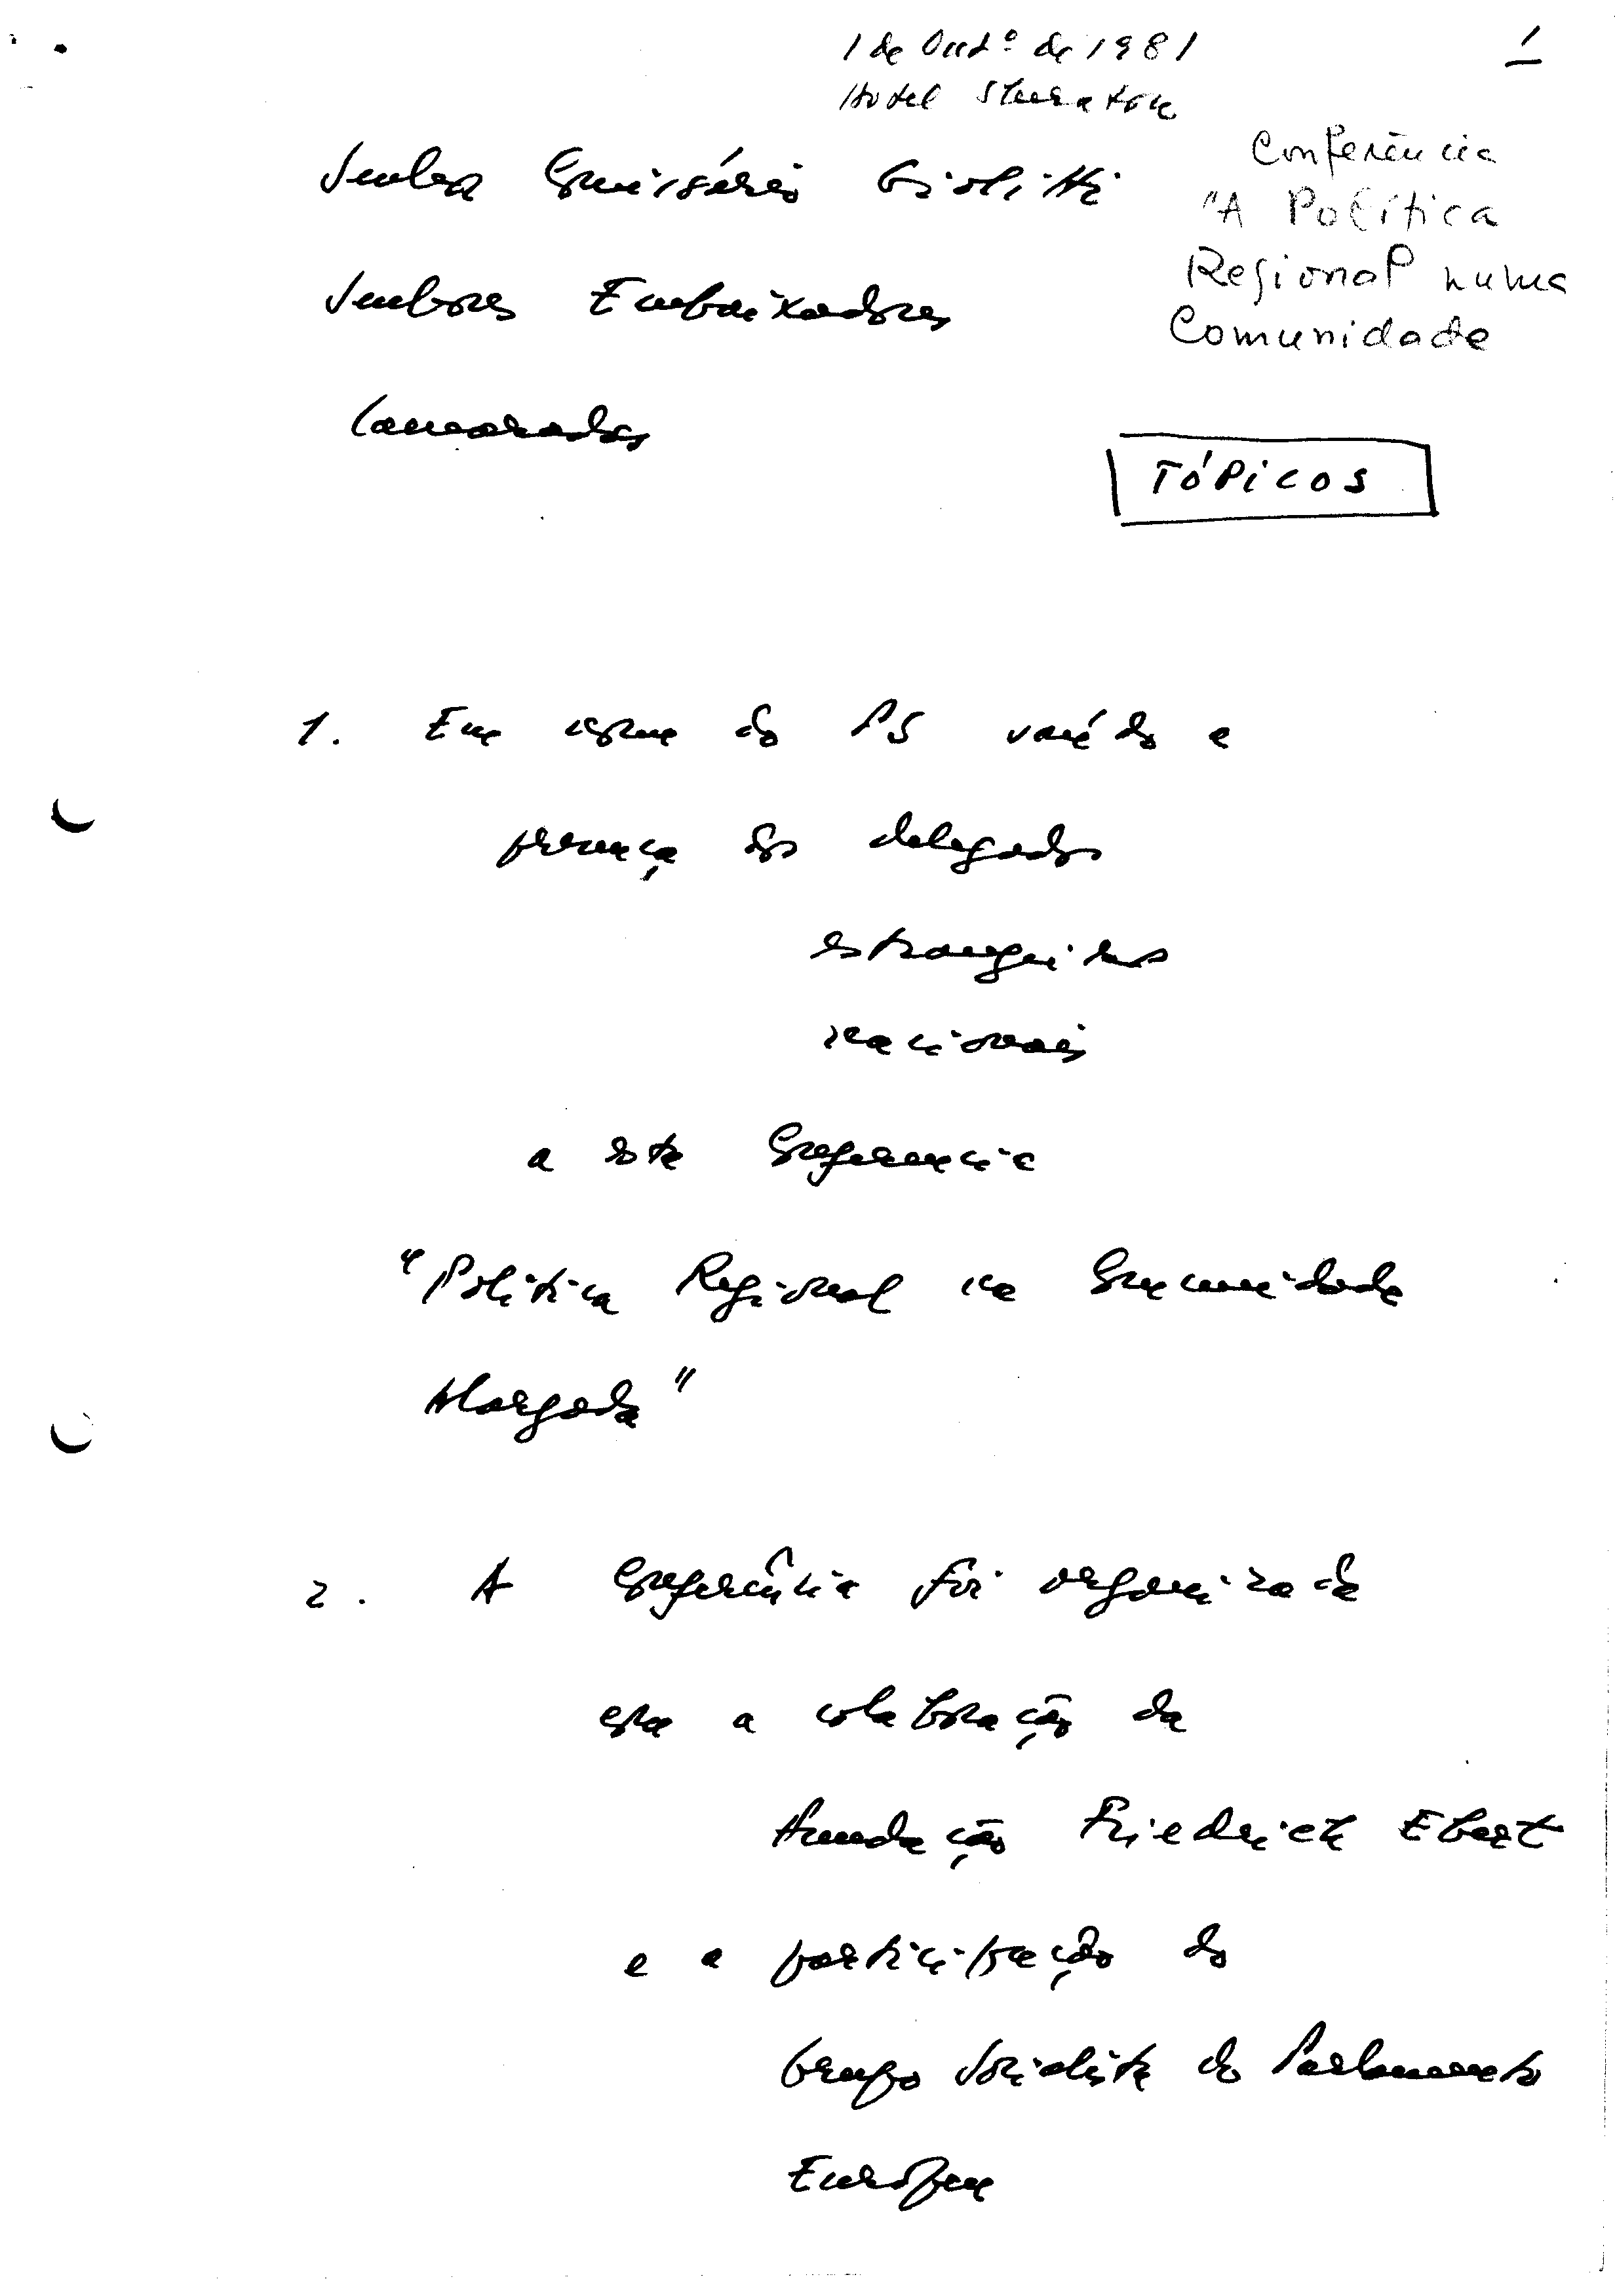 1 de Outº de 1981
1
Hotel Sheraton
Conferência
"A Política
Regional numa
Comunidade
Senhor Comissário Giolitti
Senhores Embaixadores
Camaradas
TÓPICOS
1. Em nome do PS saúdo a
presença dos delegados
estrangeiros
nacionais
a esta Conferencia
"Politica Regional na Comunidade
Alargada"
2. A Conferência foi organizada
com a colaboração da
Fundação Friedrich Ebert
e a participação do
Grupo Socialista do Parlamento
Europeu